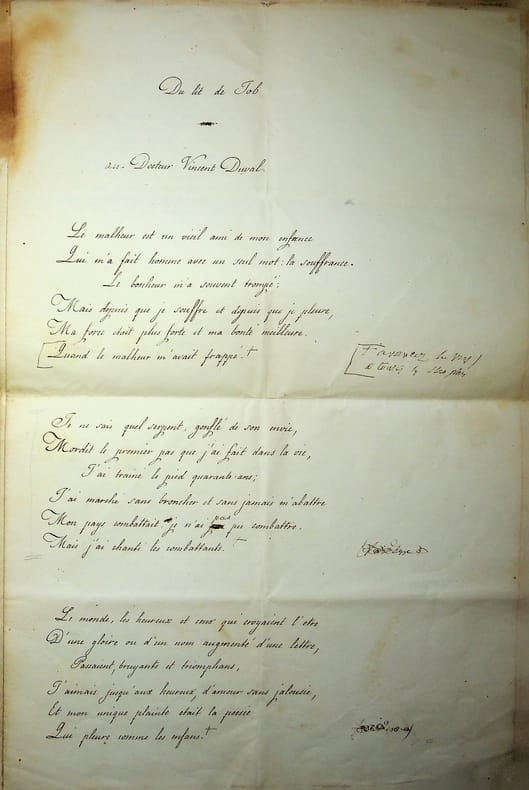 Du lit de Job
au Docteur Vincent Duval.
Le malheur est un vieil ami de mon enfance
Qui m'a fait homme avec un seul mot: la souffrance.
Le bonheur m'a souvent trompé;
Mais depuis que je souffre et depuis que je pleure,
Ma force était plus forte et ma bonté meilleure.
Quand le malheur m'avait frappé. †
Je ne sais quel serpent, gonflé de son envie,
Mordit le premier pas que j'ai fait dans la vie,
J'ai traîné le pied quarante ans;
J'ai marché sans broncher et sans jamais m'abattre
Mon pays combattait je n'ai pas pu combattre.
Mais j'ai chanté les combattants. †
Le monde, les heureux et ceux qui croyaient l'être
D'une gloire ou d'un nom augmenté d'une lettre,
Passaient, bruyants et triomphans,
J'aimais jusqu'aux heureux, d'amour sans jalousie,
Et mon unique plainte était la poésie
Qui pleure comme les enfans. †